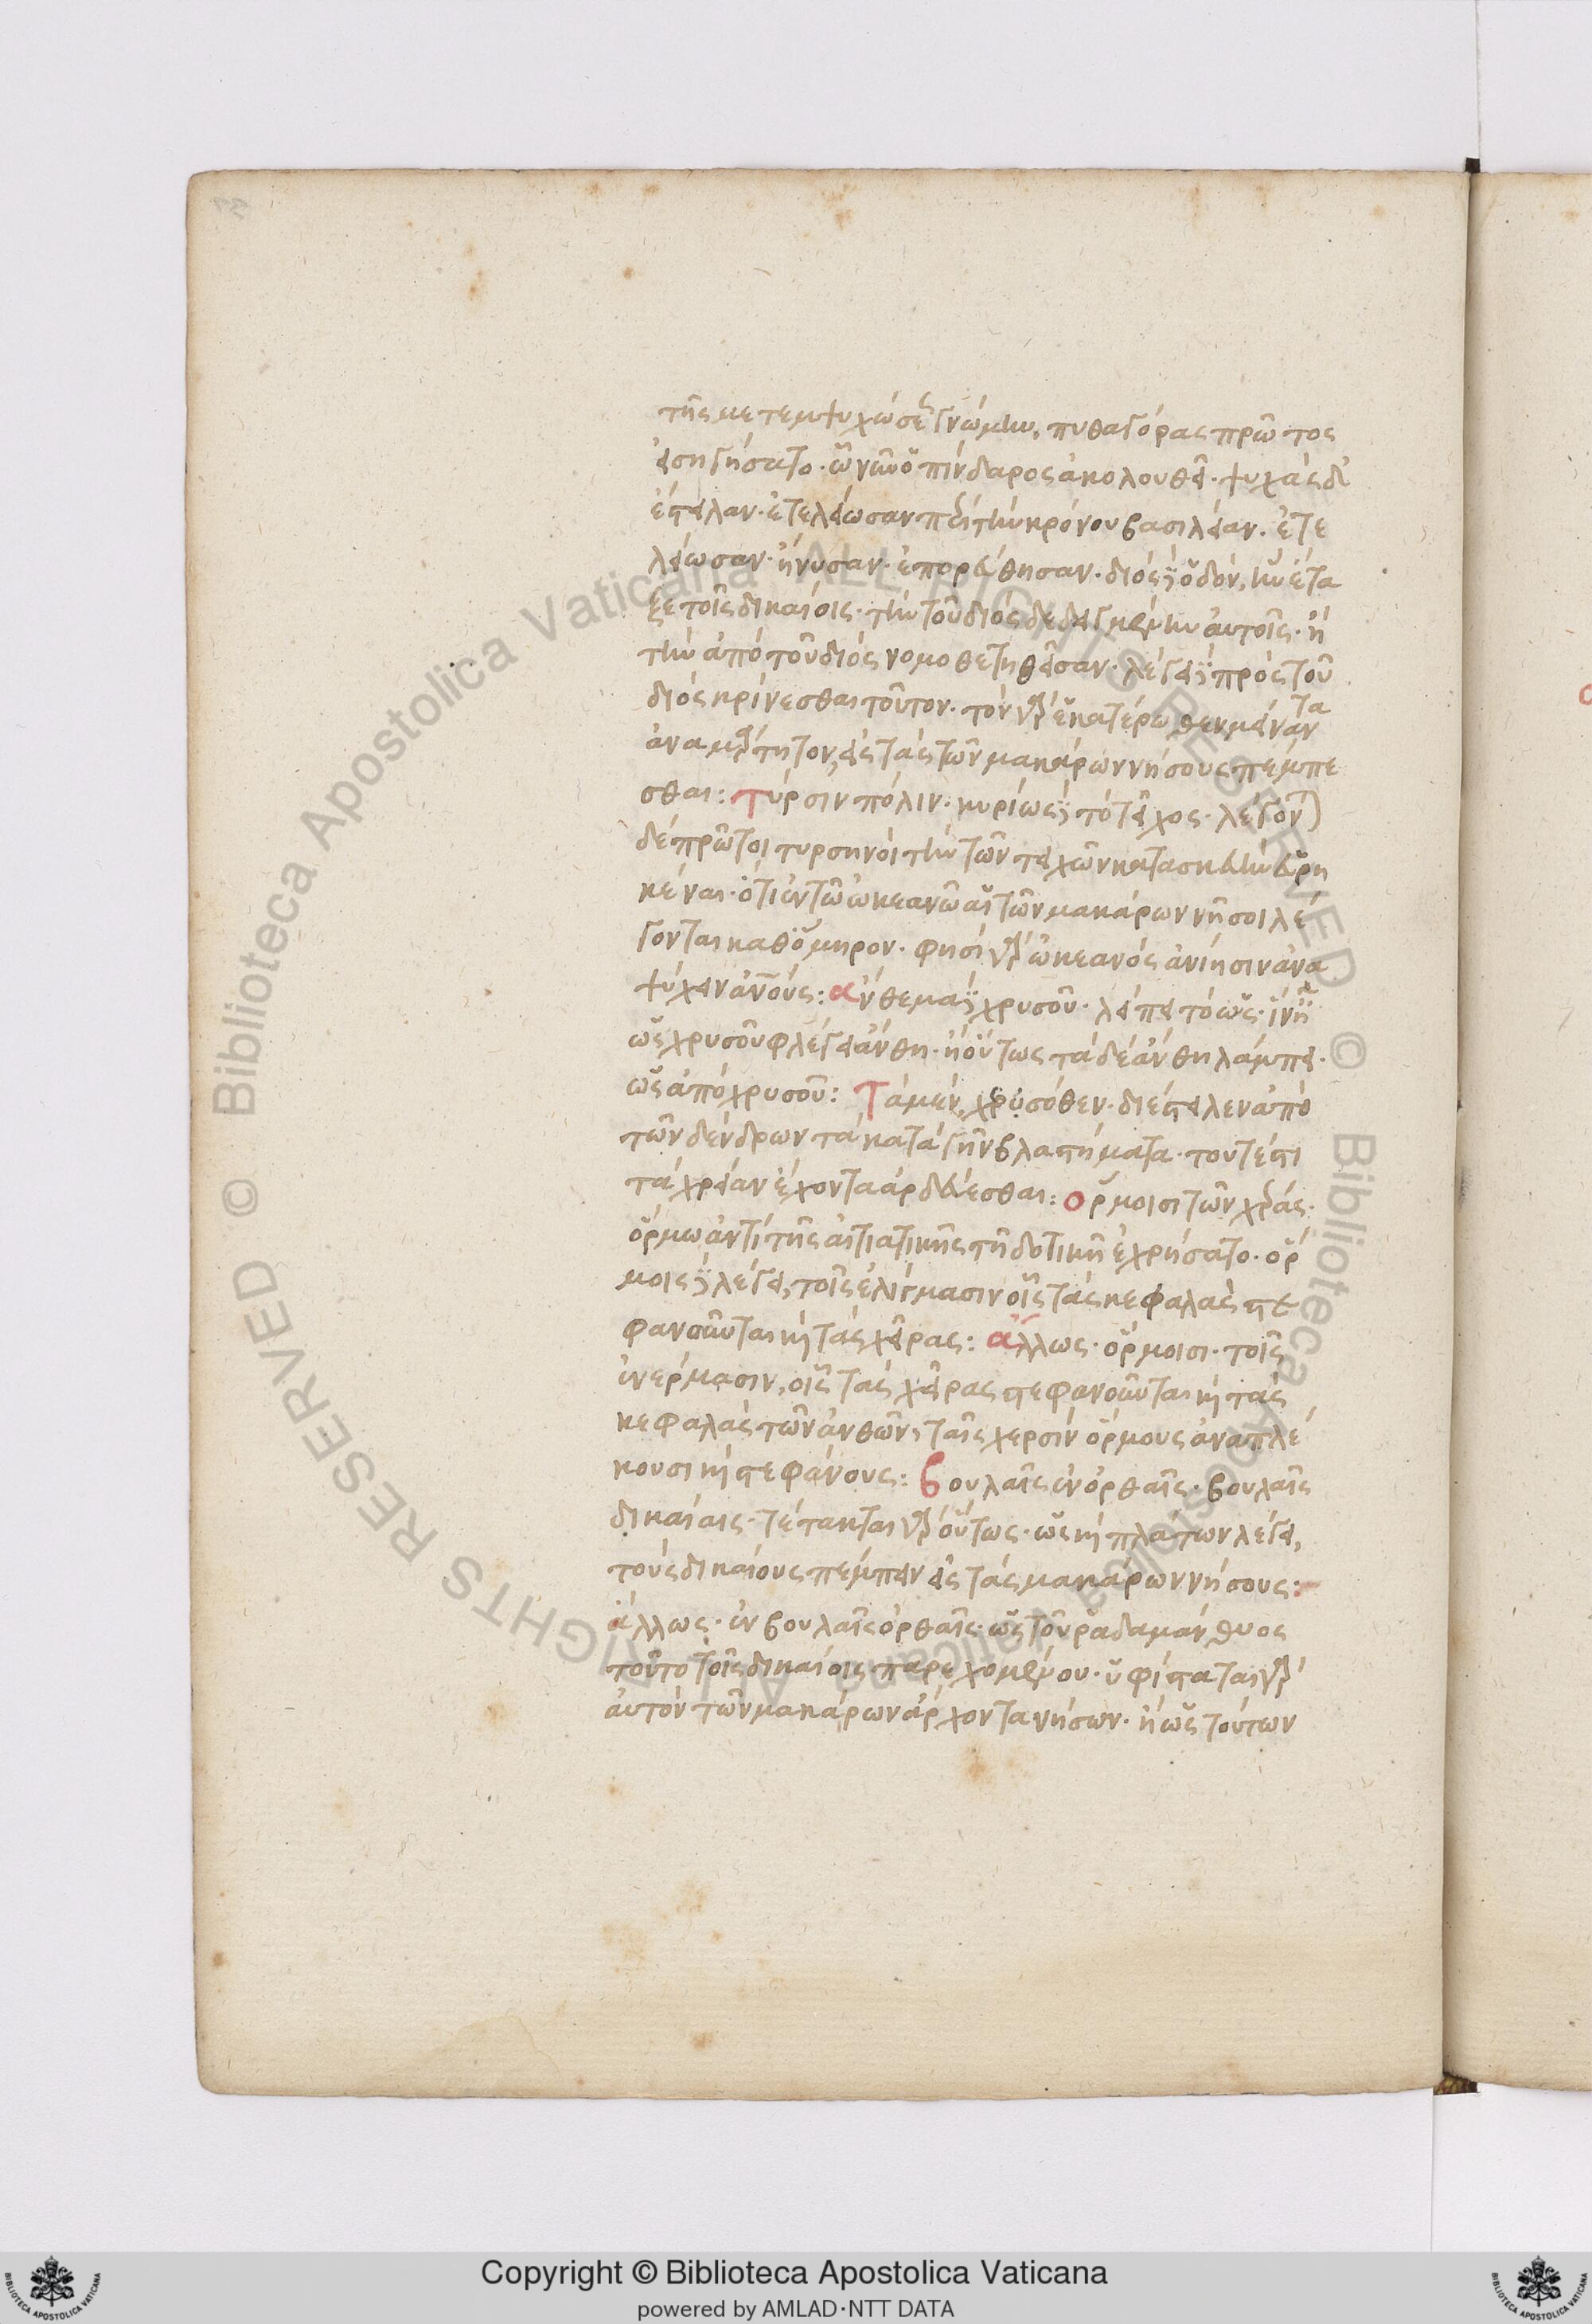 τῆς μετεμψυχώσεως γνώμην, πυθαγόρας πρῶτος
εἰσηγήσατο. ὧ νῦν ὁ πίνδαρος ἀκολουθεῖ. ψυχὰς δὲ
ἔστειλαν. ἐτελείωσαν περὶ τὴν κρόνου βασιλείαν. ἐτε
λείωσαν. ἤνυσαν. ἐπορεύθησαν. διὸς δὲ ὁδὸν, ἣν ἔτα
ξε τοῖς δικαίοις. τὴν τοῦ διὸς δεδειγμένην αὐτοῖς. ἢ
τὴν ἀπὸ τοῦ διὸς νομοθετηθεῖσαν. λέγει δὲ πρὸς τοῦ
διὸς κρίνεσθαι τοῦτον. τὸν γὰρ ἑκατέρωθεν μείναντα
ἀναμάρτητον, εἰς τὰς τῶν μακάρων νήσους πέμπε
σθαι: Τύρσιν πόλιν. κυρίως δὲ τὸ τεῖχος. λέγονται
δὲ πρῶτοι τυρσηνοὶ τὴν τῶν τειχῶν κατασκευὴν εὑρη
κέναι. ὅτι ἐν τῶ ὠκεανῶ αἱ τῶν μακάρων νῆσοι λέ
γονται καθ' ὅμηρον. φησὶ γὰρ ὠκεανὸς ἀνίησιν ἀνα
ψύχειν ἀνους: ἄνθεμα δὲ χρυσοῦ. λείπει τὸ ὡς. ἵν' ᾖ
ὡς χρυσοῦ φλέγει ἄνθη. ἢ οὕτως τὰ δὲ ἄνθη λάμπει.
ὡς ἀπὸ χρυσοῦ: Τὰ μὲν, χρυσόθεν. διέστειλεν ἀπὸ
τῶν δένδρων τὰ κατὰ γῆν βλαστήματα. τουτέστι
τὰ χρείαν ἔχοντα ἀρδεύεσθαι: ὅρμοισι τῶν χέρας.
ὅρμω ἀντὶ τῆς αἰτιατικῆς τῆ δοτικῆ ἐχρήσατο. ὅρ
μοις δὲ λέγει, τοῖς ἑλίγμασιν οἷς τὰς κεφαλὰς στε
φανοῦνται καὶ τὰς χεῖρας: ἄλλως. ὅρμοισι. τοῖς
ἐνέρμασιν, οἷς τὰς χεῖρας στεφανοῦνται καὶ τὰς
κεφαλὰς τῶν ἀνθῶν, ταῖς χερσὶν ὅρμους ἀναπλέ
κουσι καὶ στεφάνους: βουλαῖς ἐν ὀρθαῖς. βουλαῖς
δικαίαις. τέτακται γὰρ οὕτως. ὡς καὶ πλάτων λέγει,
τοὺς δικαίους πέμπειν εἰς τὰς μακάρων νήσους:
ἄλλως. ἐν βουλαῖς ὀρθαῖς. ὡς τοῦ ῥαδαμάνθυος
τοῦτο τοῖς δικαίοις παρεχομένου. ὑφίσταται γὰρ
αὐτὸν τῶν μακάρων ἄρχοντα νήσων. ἢ ὡς τούτων
Copyright © Biblioteca Apostolica Vaticana
powered by AMLAD·NTT DATA